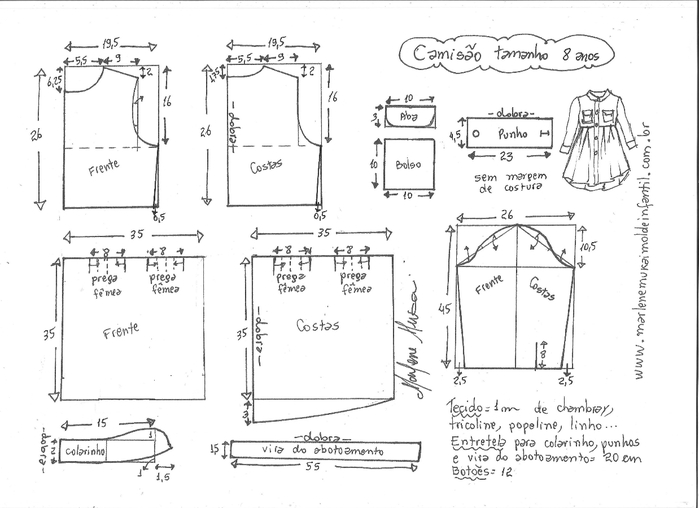 Camisão tamanho 8 anos
19,5
5,5
9
6,25
2
16
26
Frente
0,5
19,5
5,5
9
2
16
26
-dobra-
Costas
0,5
10
3
Aba
10
Bolso
10
-dobra-
4,5
Punho
23
sem margem
de costura
www.marlenemukaimoldeinfantil.com.br
35
8
8
prega
fêmea
prega
fêmea
35
Frente
35
8
8
prega
fêmea
prega
fêmea
35
-dobra-
Costas
3
Marlene Mukai
26
10,5
Frente
Costas
45
8
2,5
2,5
15
-dobra-
2
colarinho
1
1
1,5
-dobra-
15
vira do abotoamento
55
Tecido=1m de chambray,
tricoline, popeline, linho...
Entretela para colarinho, punhos
e vira do abotoamento= 20cm
Botões= 12